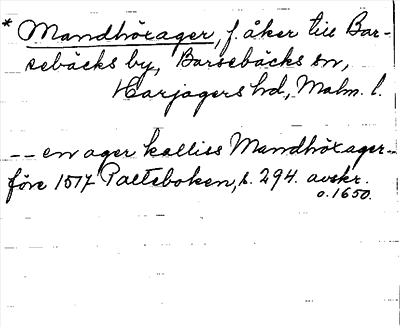 * Mandhöxager, f. åker till Bar-
sebäcks by, Barsebäcks sn,
Harjagers hd, Malm. l.
-- en ager kalliss Mandhöxager --
före 1517 Palteboken, s. 294. avskr.
o. 1650.